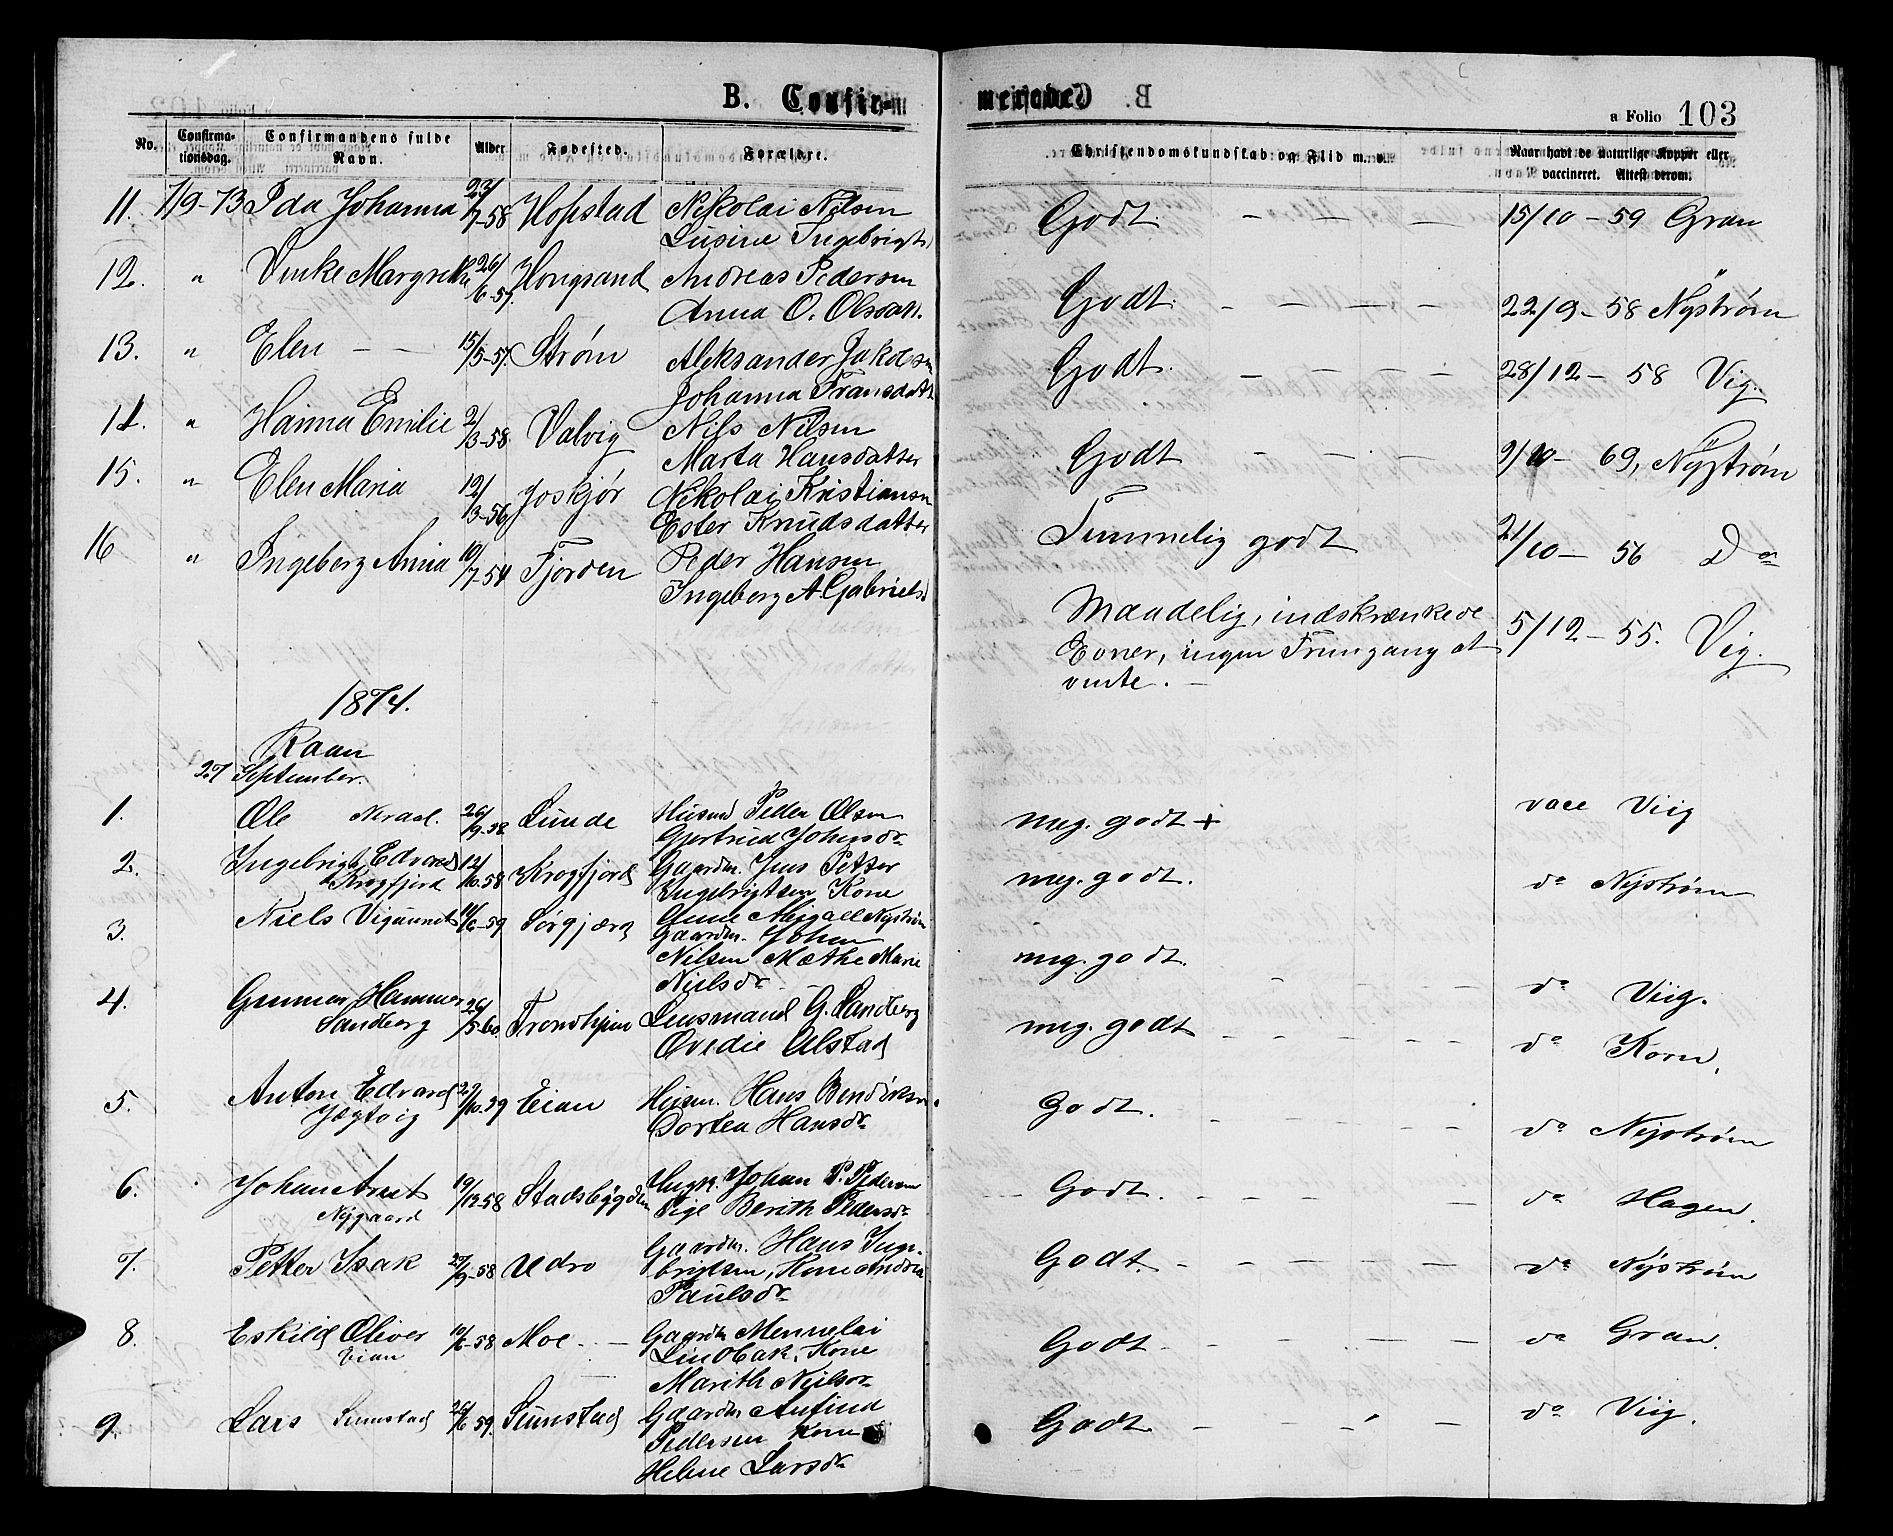 B. Confir-
a Folio 103
No.
Confirma-
tionsdag.
Confirmandens fulde
Navn.
Alder
Fødested.
Forældre.
Christendomskundskab og Flid m. v.
Naar havt de naturlige Kopper eller
vaccineret. Attest derom.
11. 7/9-73 Ida Johanna 23/7-58 Hopstad Nikolai Nilsen
Lusine Ingebrigts
Godt. 15/10-59 Gran
12. " Margretha 26/6-57. Hongsand Andreas Pedersen
Anna O. Olsdatt.
Godt. 22/9-58 Nystrøm
13. " Elen 15/5-57. Strøm Aleksander Jakobsn
Johanna Fransdatt
Godt. 28/12-58 Vig.
14. " Hanna Emilie 2/3-58. Valvig Nils Nilsen
Marta Hansdatter
Godt 69, Nystrøm
15. " Elen Maria 12/3-56 Joskjør Nikolai Kristiansn
Ester Knudsdatter
Temmelig godt 21/10-56 Do
16 " Ingeborg Anna 10/7-54 Fjorden Peder Hansen
Ingeborg A Gabrielsd
Maadelig, indskrænkede
Evner, ingen Fremgang at
vente.
5/12-55. Vig.
1874.
Raan
27 September.
1. Ole 26/9 58 Lunde Husmd Peder Olsen
Gjertrud Johnsdr
meg. godt + vacc Viig
2. Ingebrigt Edvard
Krogfjord
12/10.58 Krogfjord Gaardm. Jens Petter
Ingebrigtsen Kone
Abigael Nystrøm
meg. godt. do Nystrøm
3. Niels Vigsunet 59 Sørgjerd Gaardm. Johan
Nilsen Mæthe Marie
Nielsdr
meg. godt. do Viig.
4. Gunnar Hammer
Sandberg
26/5 60. Trondhjem Lensmand G. Sandberg
Ovedie Alstad
meg. godt do Korn.
5. Anton Edvard
Jegtvig
22/10.59 Eian Husm. Hans Bendiksen
Dortea Hansdr
Godt. do Nystrøm
6. Johan Arnt
Nygaard
19/12-58 Stadsbygden Ungk. Johan P. Pedersen
Pige Berith Pedersdr
Godt. do Hagen.
7. Petter Isak 27/9-58 Udro Gaardm. Hans Inge-
brigtsen, Kone Andrea
Paulsdr
Godt. do Nystrøm
8. Eskild Oliver
Vian
10/6-58 Moe Gaardm Mennelai
Lindbak, Kone
Marith Nielsdr
Godt do Gran.
9. Lars Sumstad 26/6 59. Sumstad Gaardm Anfind
Pedersen Kone
Helene Larsdr
Godt do Viig.